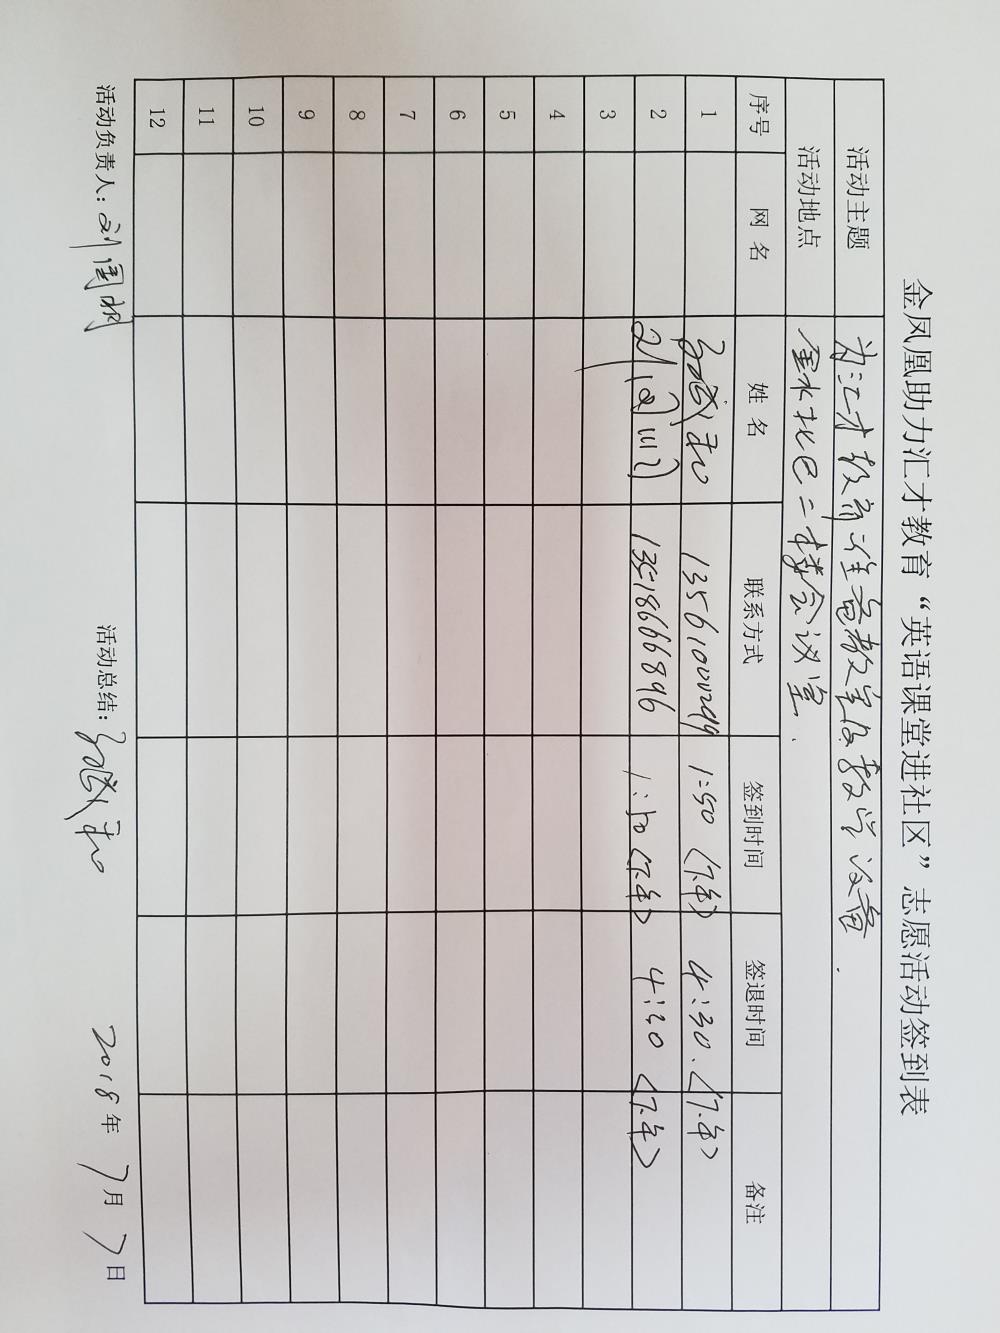 金凤凰助力汇才教育“英语课堂进社区”志愿活动签到表
活动主题 为汇才教育准备教室及教学设备.
活动地点 金水北巴二楼会议室.
序号 网名 姓名 联系方式 签到时间 签退时间 备注
1 13561000299 1:50(下午) 4:30.(下午)
2 13518666896 1:50(下午) 4:30(下午)
3
4
5
6
7
8
9
10
11
12
活动负责人: 活动总结: 2018年7月7日